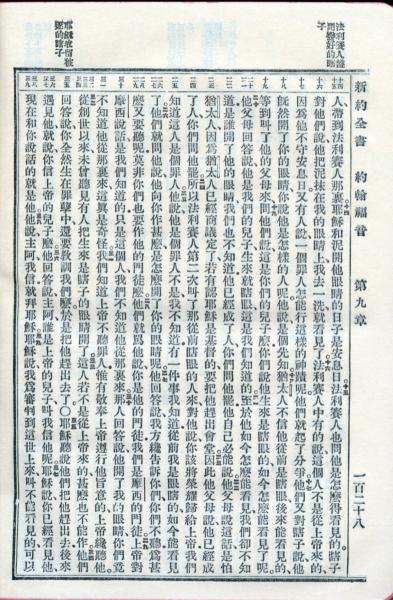 新約全書 約翰福音 第九章 一百二十八
法利賽人
子
人帶到法利賽人那裏耶穌和泥開他眼睛的日子是安息日法利賽人也問他是怎麼得看見的瞎子
對他們說他把泥抹在我的眼睛上我去一洗就看見了法利賽人中有的說這個人不是從上帝來的
因爲他不守安息日又有人說一個罪人怎能行這樣的神蹟呢他們就起了分爭他們又對瞎子說他
旣然開了你的眼睛你說他是怎樣的人呢他說是個先知猶太人不信他從前是瞎眼後來能看見的
等到叫了他的父母來問他們說這是你們的兒子麼你們說他生來是瞎眼的如今怎麼能看見了呢
他父母回答說他是我們的兒子生來就瞎眼這是我們知道的至於他如今怎麼能看見我們卻不知
道是誰開了他的眼睛我們也不知道他已經成了人你們問他罷他自己必能說他父母說這話是怕
猶太人因爲猶太人已經商議定了若有認耶穌是基督的要把他趕出會堂因此他父母說他已經成
了人你們問他罷所以法利賽人第二次叫了那從前瞎眼的人來對他說你該將榮耀歸給上帝我們
知道這人是個罪人他說他是個罪人不是我不知道有一件事我知道從前我是眼瞎的如今能看見
了他們就問他說他向你作甚麼是怎麼開了你的眼睛呢他回答說我方纔告訴你們你們不聽爲甚
麼又要聽呢莫非你們也要作他的門徒麼他們就罵他說你是他的門徒我們是摩西的門徒上帝對
摩西說話是我們知道的只是這個人我們不知道他從那裏來那人回答說他開了我的眼睛你們竟
不知道他從那裏來這眞是奇怪我們知道上帝不聽罪人惟有敬奉上帝遵行他旨意的上帝纔聽他
從創世以來未曾聽見有人把生來是瞎子的眼睛開了這人若不是從上帝來的甚麼也不能作他們
回答說你全然生在罪孽中還要教訓我們麼於是把他趕出去了○耶穌聽說他們把他趕出去後來
遇見他就說你信上帝的兒子麼他回答說主阿誰是上帝的兒子叫我信他呢耶穌說你已經看見他
現在和你說話的就是他他說主阿我信就拜耶穌耶穌說我爲審判到這世上來叫不能看見的可以